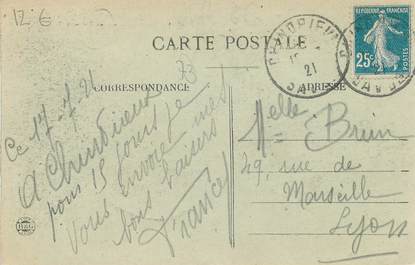 12 €
CARTE POSTALE
73
CORRESPONDANCE
ADRESSE
RÉPUBLIQUE FRANÇAISE
25c
21
Ce 17-7 21
A Chindrieux
pour 15 jours je
vous envoie mes
bons baisers
France
Melle Brun
49, rue de
Marseille
Lyon